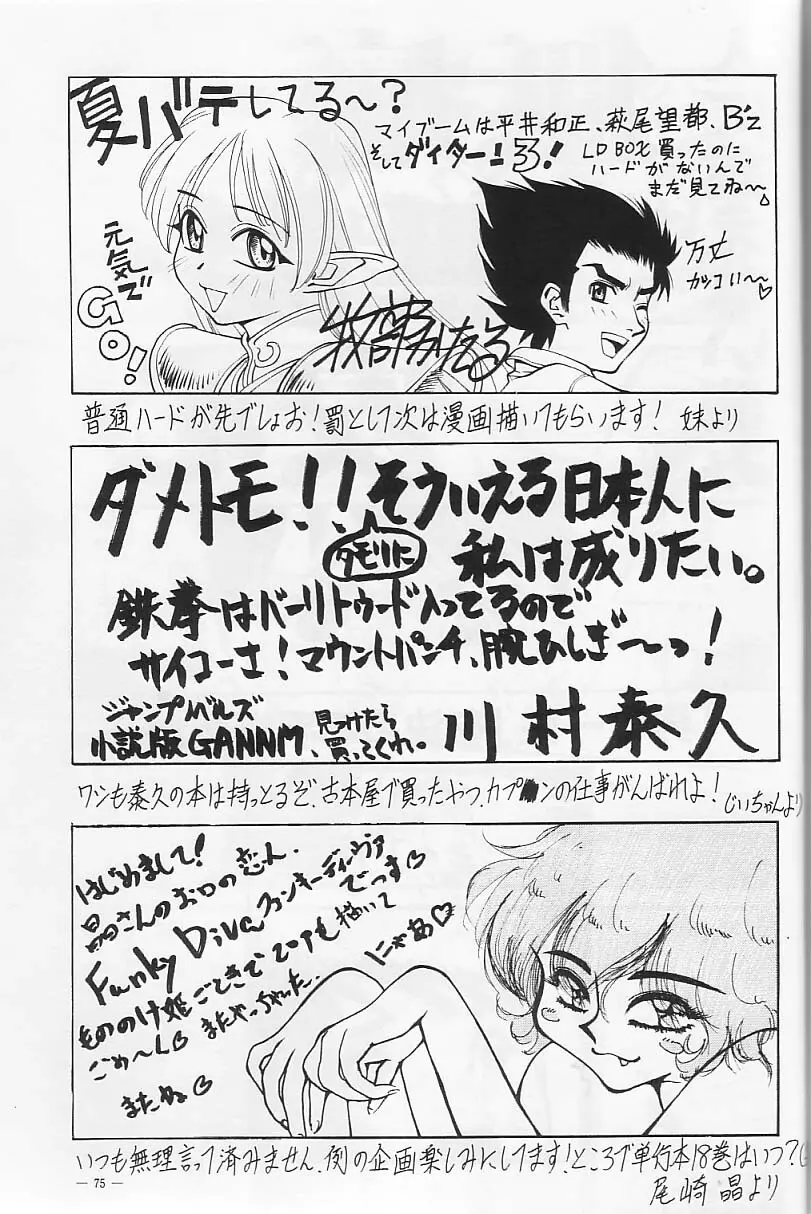 夏バテしてる〜?
マイブームは平井和正、萩尾望都、B'z
そしてダイターン3!
LD BOX買ったのに
ハードがないんで
まだ見てね〜
万丈
カッコい〜♡
元気で
GO!
普通ハードが先でしょお!罰として次は漫画描いてもらいます! 妹より
ダメトモ!!そういえる日本人に
タモリに
私は成りたい。
鉄拳はバーリトゥード入ってるので
サイコーさ!マウントパンチ、腕ひしぎ〜っ!
ジャンプノベルズ
小説版GANNM、見つけたら
買ってくれ。
川村泰久
ワシも泰久の本は持っとるぞ、古本屋で買ったやつ、カプ■ンの仕事がんばれよ! じいちゃんより
はじめまして!
晶さんのお口の恋人、
Funky Divaファンキーディヴァ
でっす♡
もののけ姫ごときで2コPも描いて
ごめ〜ん♡ またやっちゃった。
にゃあ♡
またね♡
いつも無理言って済みません、例の企画楽しみにしてます!ところで単行本18巻はいつ?
尾崎 晶より
— 75 —